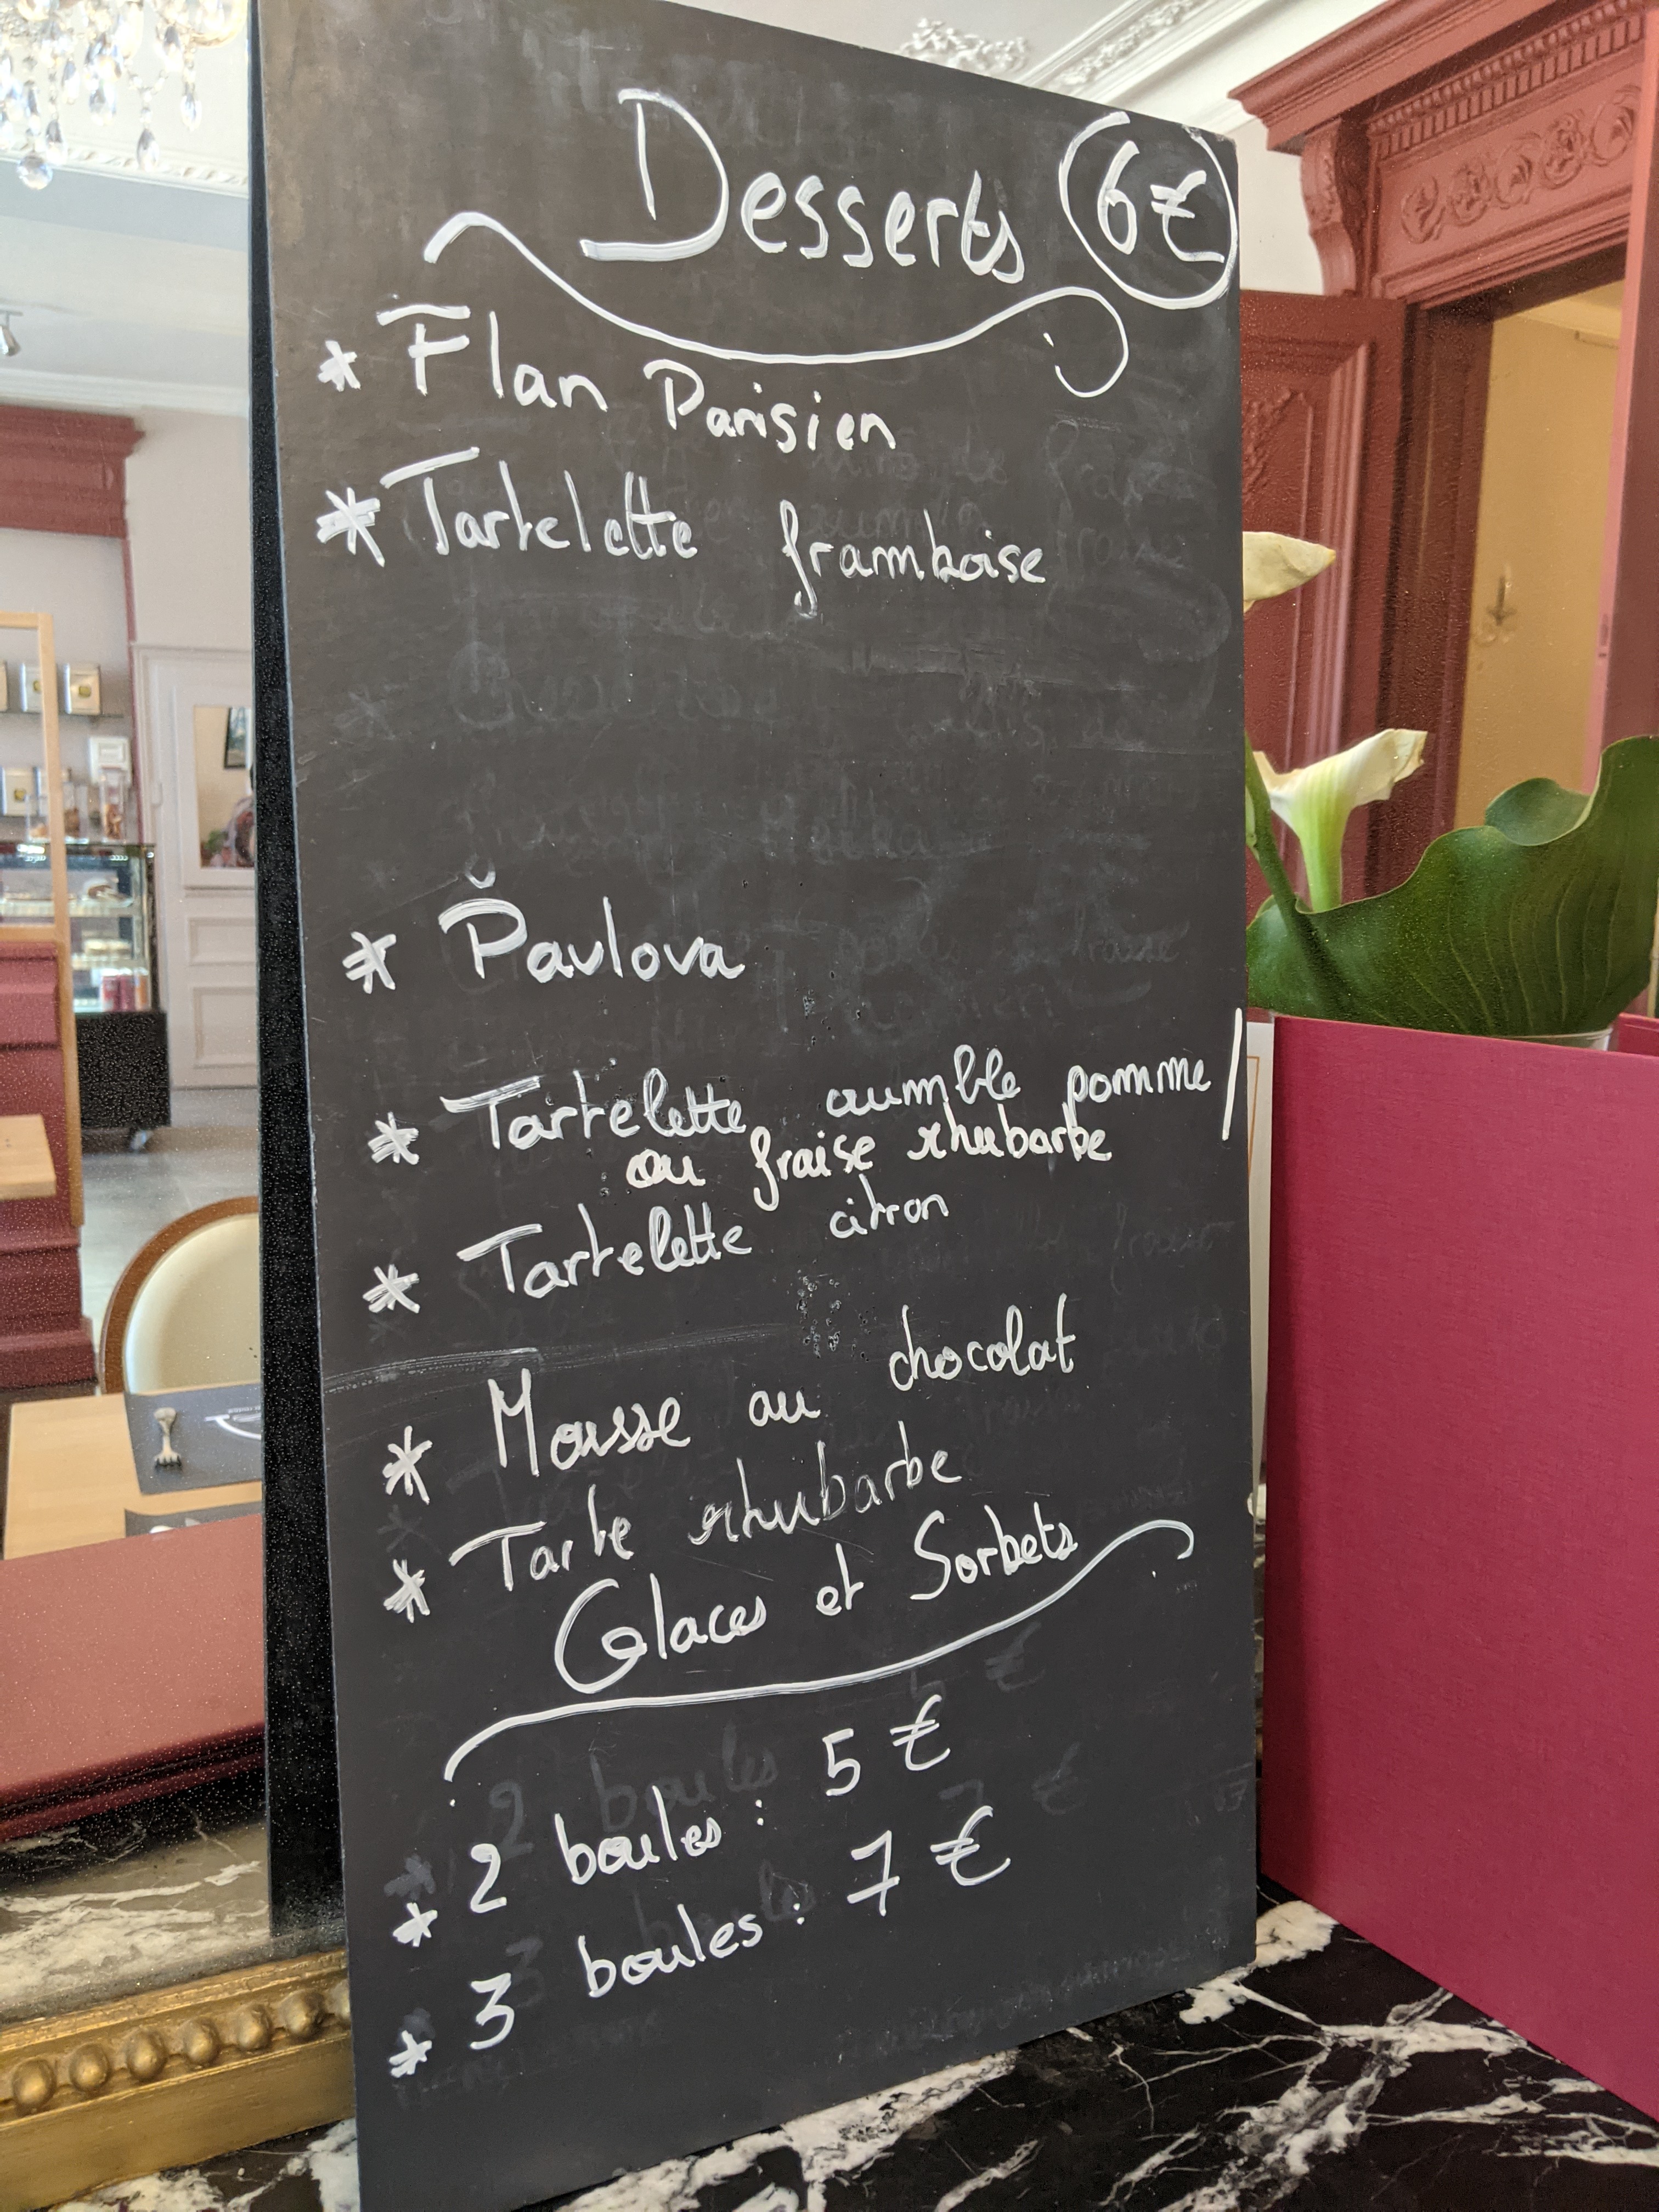 Desserts 6€
* Flan Parisien
* Tartelette framboise
* Pavlova
* Tartelette crumble pomme/
ou fraise rhubarbe
* Tartelette citron
* Mousse au chocolat
* Tarte rhubarbe
Glaces et Sorbets
* 2 boules : 5 €
* 3 boules : 7 €